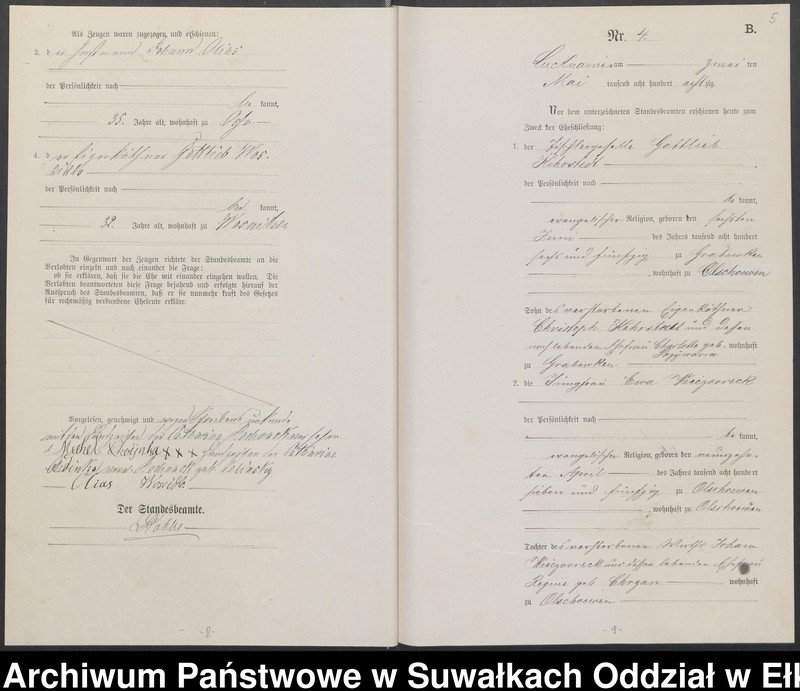 Als Zeugen waren zugezogen und erschienen:
3. d er Johann Olias
der Persönlichkeit nach
be kannt,
35. Jahre alt, wohnhaft zu
4. d er Eigenkäthner Gottlieb Wos-
der Persönlichkeit nach
be kannt,
32. Jahre alt, wohnhaft zu
In Gegenwart der Zeugen richtete der Standesbeamte an die
Verlobten einzeln und nach einander die Frage:
ob sie erklären, daß sie die Ehe mit einander eingehen wollen. Die
Verlobten beantworteten diese Frage bejahend und erfolgte hierauf der
Ausspruch des Standesbeamten, daß er sie nunmehr kraft des Gesetzes
für rechtmäßig verbundene Eheleute erkläre.
Vorgelesen, genehmigt und wegen Schreibens unkunde
mit den Handzeichen der Catharina
Michel + + + Handzeichen der Catharina
geb.
Olias
Der Standesbeamte.
-8-
5
B.
Nr. 4.
am zwei ten
Mai tausend acht hundert acht zig.
Vor dem unterzeichneten Standesbeamten erschienen heute zum
Zweck der Eheschließung:
1. der Tischlergeselle Gottlieb
Kehrstedt
der Persönlichkeit nach
be kannt,
evangelischer Religion, geboren den sechsten
Juni des Jahrs tausend acht hundert
sechs und fünfzig zu Grabowken
, wohnhaft zu Olschoewen
Sohn des verstorbenen Eigenkäthner
Christoph Kehrstedt und dessen
noch lebenden Ehefrau Charlotte geb. wohnhaft
zu Grabowken
2. die Jungfrau Ewa Wieczorreck
der Persönlichkeit nach
be kannt,
evangelischer Religion, geboren den neunzehn-
ten April des Jahrs tausend acht hundert
sieben und fünfzig zu Olschoewen
, wohnhaft zu Olschoewen
Tochter des verstorbenen Wirth Johann
Wieczorreck und dessen lebenden Ehefrau
Regine geb. wohnhaft
zu Olschoewen
-9-
Archiwum Państwowe w Suwałkach Oddział w Ełk